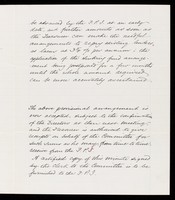 be advanced by the P.P.I. at an early
date, no further amounts as soon as
the Directors can make the needful
arrangements to repay existing lenders
of sums at 3¾ % per annum, the
application of the sinking fund arrange-
ment being postponed for a few months
until the whole amount required,
can be more accurately ascertained.
The above provisional arrangement is
now accepted subject to the confirmation
of the Directors at their next meeting
and the Chairman is authorised to give
receipts on behalf of the Committee for
such sums as he may from time to time
receive from the P.P.I.
A certified copy of this minute signed
by the Clerk to the Committee is to be
furnished to the P.P.I.